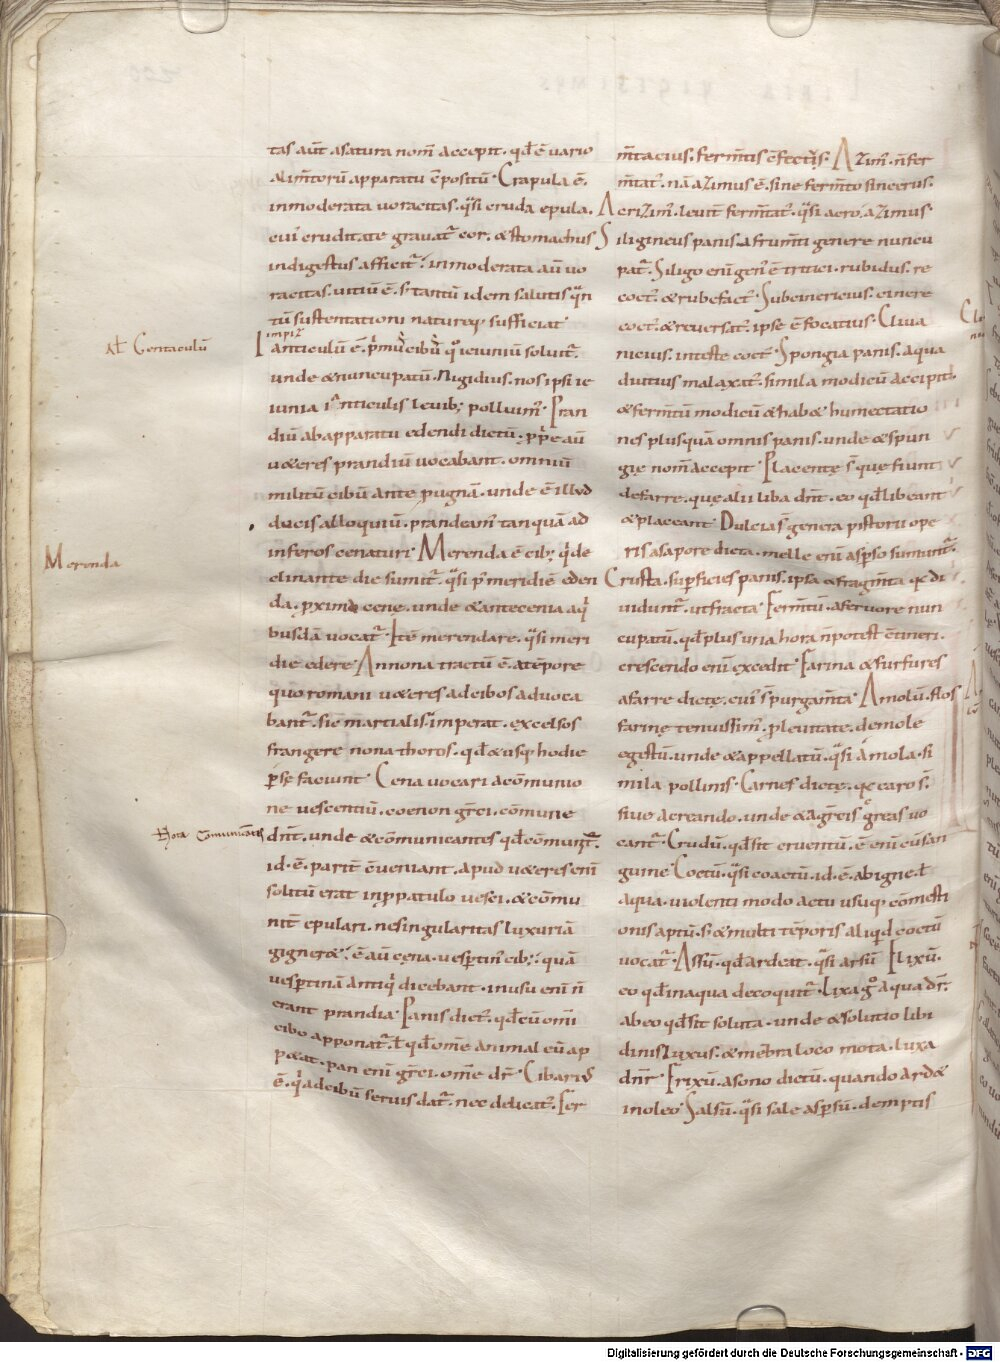 tas aut̄ a satura nom̄ accepit. qđ ē uario
alim̄torū apparatu ē positū. Crapula ē.
inmoderata uoracitas. qͣsi cruda epula.
cuiꝰ cruditate grauat̄ cor. & stomachus
indigestus afficit̄. inmoderata aū uo
racitas. uitiū ē. s; tantū idem salutis
tū sustentationi naturęq; sufficiat
Ianticulū ē. pͥmuꝰ cibuꝰ qͦ ieiuniū soluit̄.
Aƚ Gentaculū
unde & nuncupatū. Nigidius. nos ipsi ie
iunia ianticulis leuib; polluimꝰ. Pran
diū ab apparatu edendi dictū. ꝓprie aū
u&eres prandiū uocabant. omniū
militū cibū ante pugnā. unde ē illud
ducis alloquiū. prandeamꝰ tanquā ad
inferos cenaturi. Merenda ē cib; qͥ de
Merenda
clinante die sumit̄. qͣsi pͥ meridiē eden
da. & ꝓxima cenę. unde & antecenia a qͥ
busdā uocat̄. Itē merendare. qͣsi meri
die edere. Annona tractū ē. a tēpore
quo romani u&eres ad cibos aduoca
bant̄. sic martialis. imperat. excelsos
frangere nona thoros. qđ & usq; hodie
ꝑsę faciunt. Cena uocari a cōmunio
ne uescentiū. coenon gręci. cōmune
Nota Comunicantes
dn̄t. unde & cōmunicantes qđ cōmunit̄.
id. ē. parit̄ cueniant. apud u&eres eni
solitū erat in ꝓpatulo uesci. & cōmu
nit̄ epulari. ne singularitas luxuriā
gigner&. ē aū cena. uesꝑtinꝰ cib;. quā
uesꝑtinā antiqͥ dicebant. in usu eni n̄
erant prandia. Panis dictꝰ. qđ cū omi
cibo apponat̄. ƚ qđ om̄e animal eū ap
p&at. pan eni gręci. om̄e dr̄. Cibariꝰ
ē. qͥ ad cibū seruis dat̄. nec delicatꝰ. Fer
m̄tacius. ferm̄tis ē fectꝰ. Azimꝰ. n̄ fer
m̄tatꝰ. nā azimus ē. sine ferm̄to sincerus.
Acrizimꝰ. leuit̄ ferm̄tatꝰ. qͣsi acroazimus
Siligineus panis. a frum̄ti genere nuncu
pat̄. Siligo eni genꝰ ē tritici. rubidus. re
coctꝰ. & rubefactꝰ. Subcinericius. cinere
coctꝰ. & reuersatꝰ. ipse ē focatius. Cliua
nicius. in teste coctꝰ. Spongia panis. aqua
diutius malaxatꝰ. simila modicū accipit
& ferm̄tū modicū & hab& humectatio
nes plus quā omnis panis. unde & spun
gię nom̄ accepit. Placentę s̄ quę fiunt
de farre. quę alii liba dn̄t. eo qđ libeant
& placeant. Dulcia s̄ genera pistorii ope
ris a sapore dicta. melle eni asꝑso sumunt̄.
Crusta. suꝑficies panis. ipsa & fragm̄ta qͣ di
uidunt̄. ut fracta. Ferm̄tū. a feruore nun
cupatū. qđ plus una hora n̄ potest ētineri.
crescendo eni excedit. Farina & furfures
a farre dictę. cuiꝰ s̄ purgam̄ta. Amolū. flos
farinę tenuissimꝰ. p leuitate. de mole
egestū. unde & appellatū. qͣsi amola. si
mila pollinis. Carnes dictę. qͣ caro s̄.
siue a creando. unde & a gręcis creas uo
cant̄. Crudū. qđ sit cruentū. ē eni cū san
guine. Coctū. qͣsi coactū. id. ē. ab igne. ƚ
aqua. uiolenti modo actu usuq; cōmesti
onis aptū. s; & multi tēporis aliqͥd coctū
uocat̄. Assū. qđ ardeat. qͣsi arsū. Elixū.
eo qđ in aqua decoquit̄. Lixa gͦ aqua dr̄.
ab eo qđ sit soluta. unde & solutio libi
dinis luxus. & mēbra loco mota. luxa
dn̄r. Frixū. a sono dictū. quando ard&
in oleo. Salsū. qͣsi sale asꝑsū. demptis
Digitalisierung gefördert durch die Deutsche Forschungsgemeinschaft - DFG